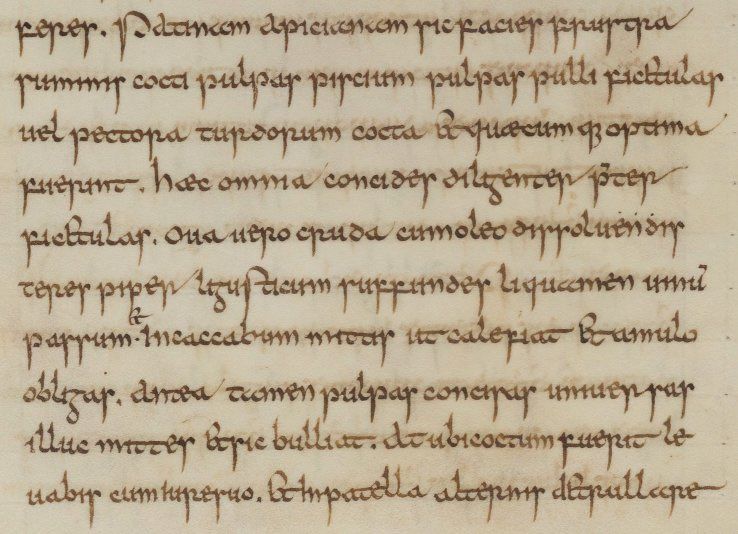 feres. Patinam apicianam sic facies frustra
suminis cocti pulpas piscium pulpas pulli ficetulas
vel pectora turdorum cocta et quæcumq; optima
fuerint. hæc omnia concides diligenter p̄ter
ficetulas. ova vero cruda cum oleo dissolvendis
teres piper ligusticum suffundes liquamen vinū
passum. et In caccabum mittis ut calefiat et amulo
obligas. antea tamen pulpas concisas universas
illuc mittes et sic bulliat. at ubi coctum fuerit le
vabis cum iure suo. et In patella alternis de trulla cre